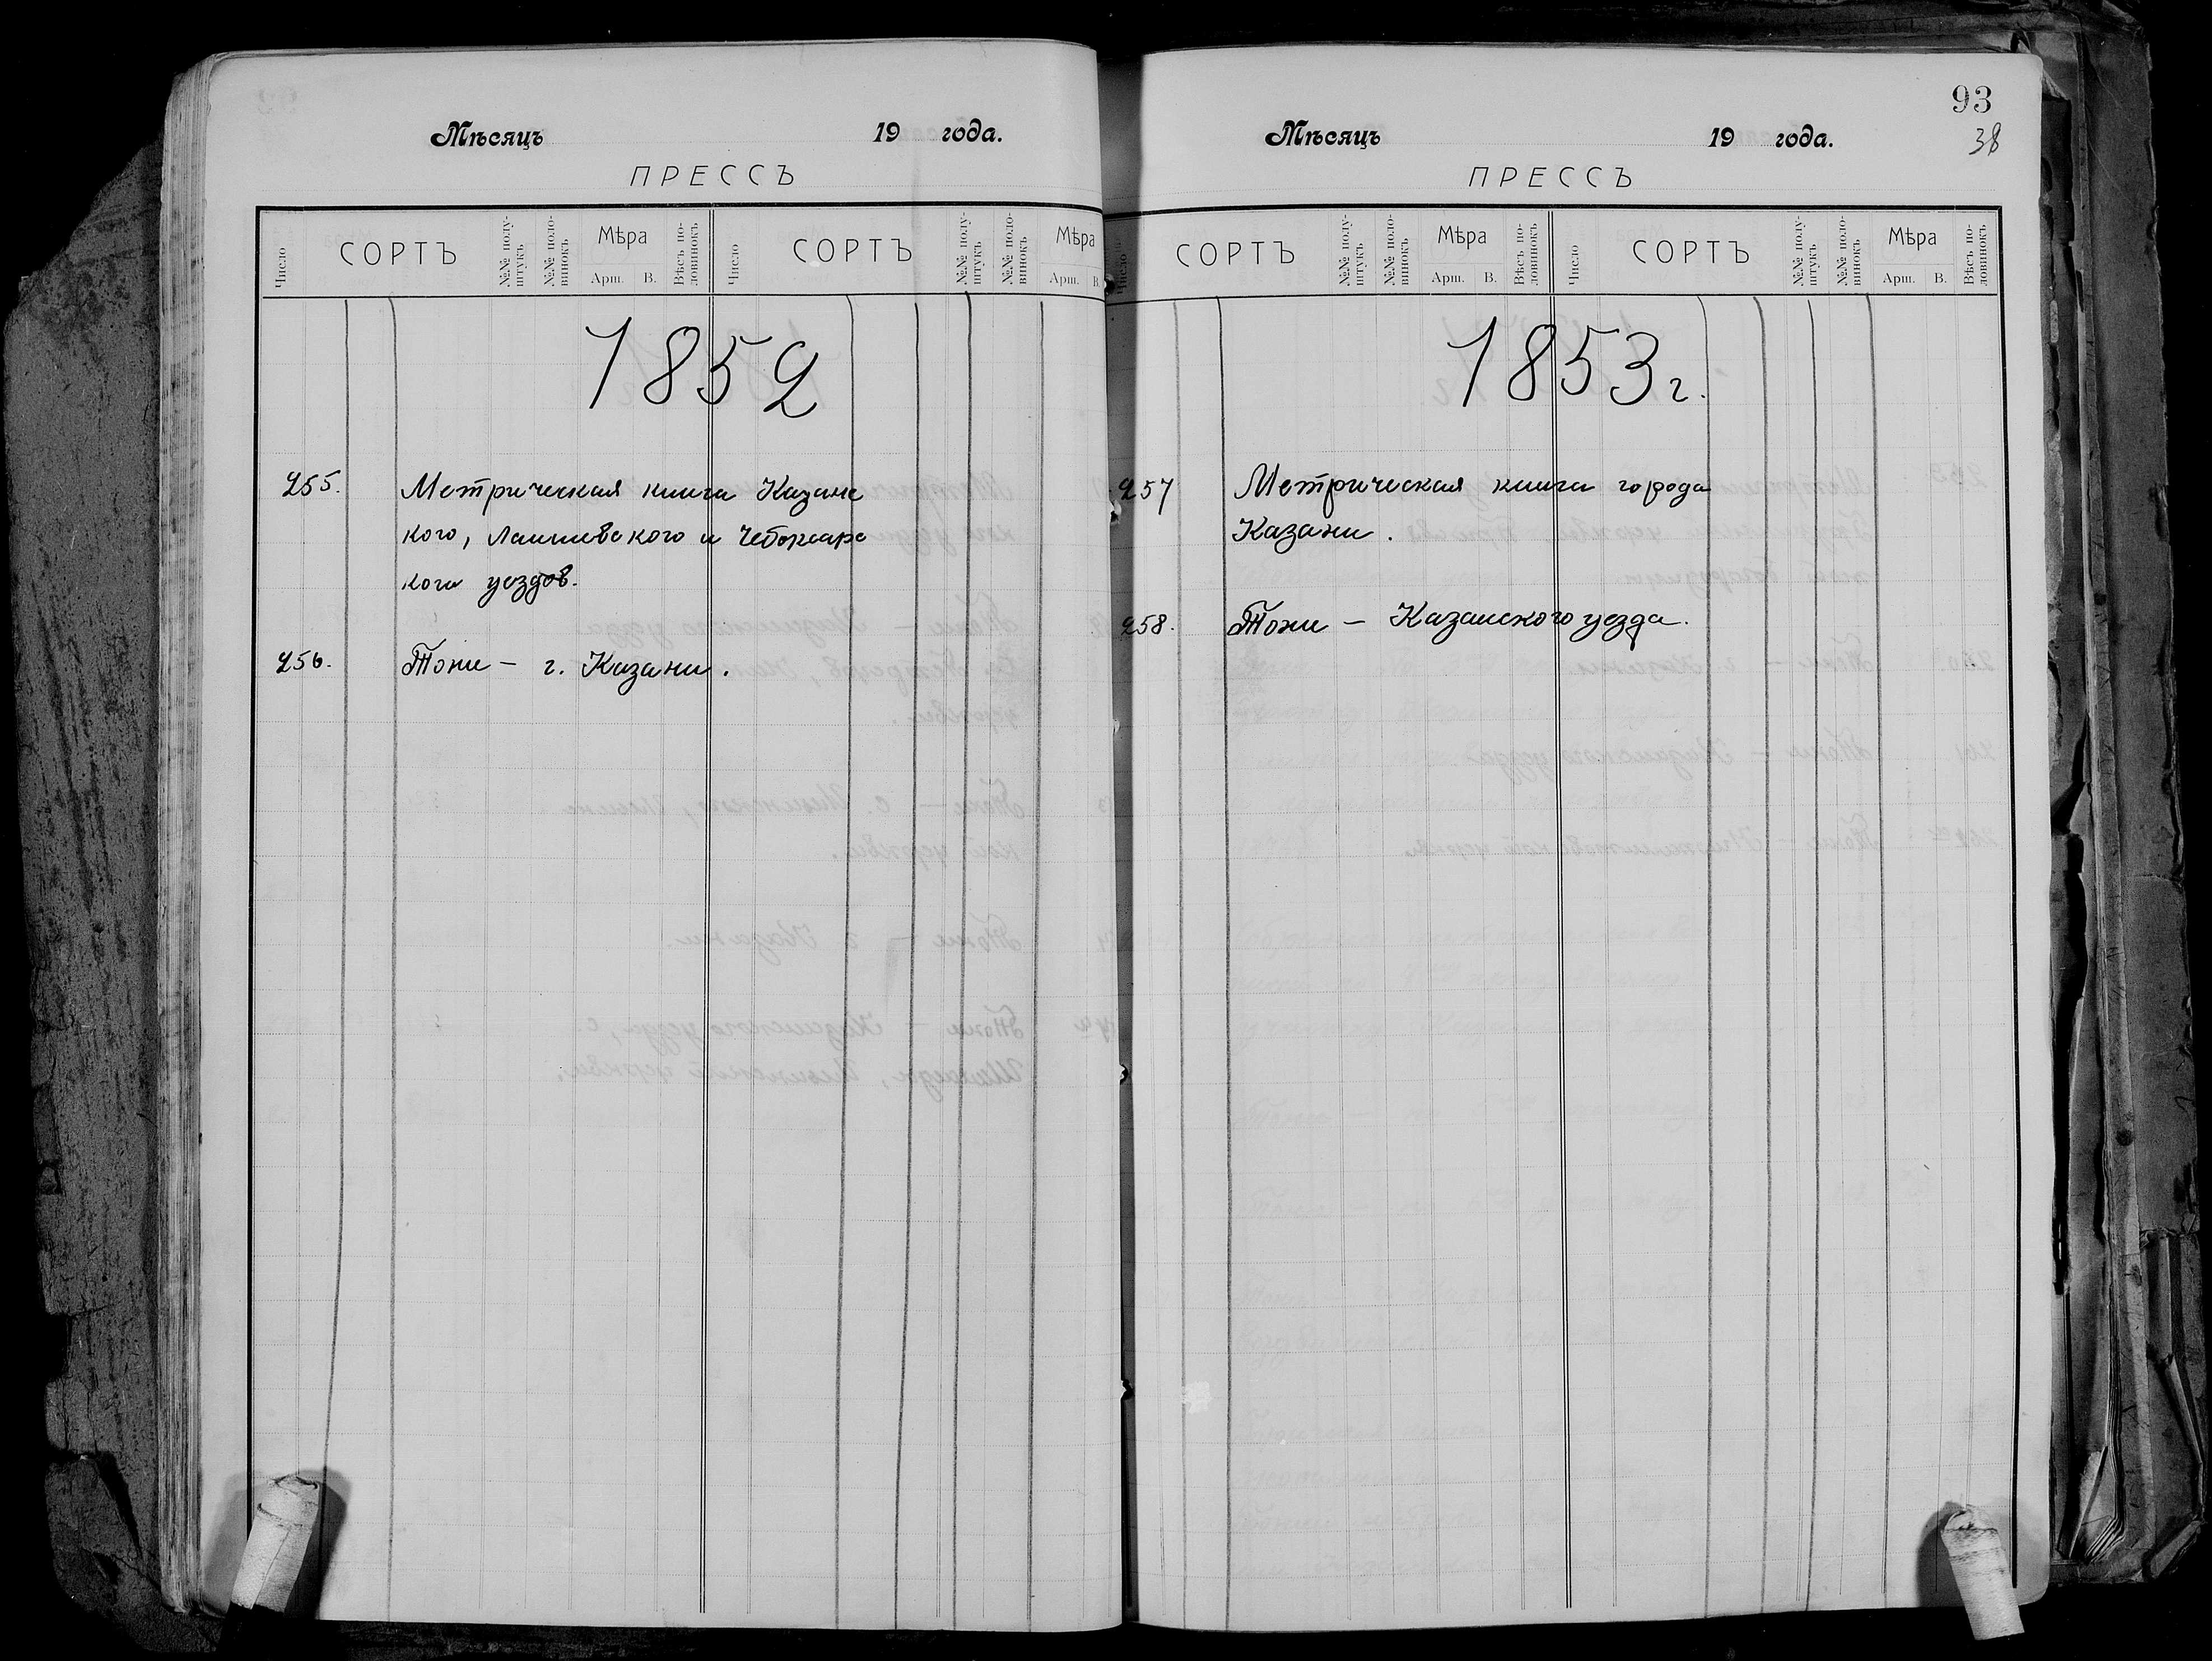 Мѣсяцъ 19 года.
ПРЕССЪ
Число СОРТЪ №№ полу-штукъ №№ поло-винокъ Мѣра Арш. В. Вѣсъ по-ловинокъ Число СОРТЪ №№ полу-штукъ №№ поло-винокъ Мѣра Арш. В.
1852
255. Метрическая книга Казанс
кого, Лаишевского и Чебоксарс
кого уездов.
256. Тоже — г. Казани.
93
38
Мѣсяцъ 19 года.
ПРЕССЪ
Число СОРТЪ №№ полу-штукъ №№ поло-винокъ Мѣра Арш. В. Вѣсъ по-ловинокъ Число СОРТЪ №№ полу-штукъ №№ поло-винокъ Мѣра Арш. В. Вѣсъ по-ловинокъ
1853 г.
257 Метрическая книга города
Казани.
258. Тоже — Казанского уезда.